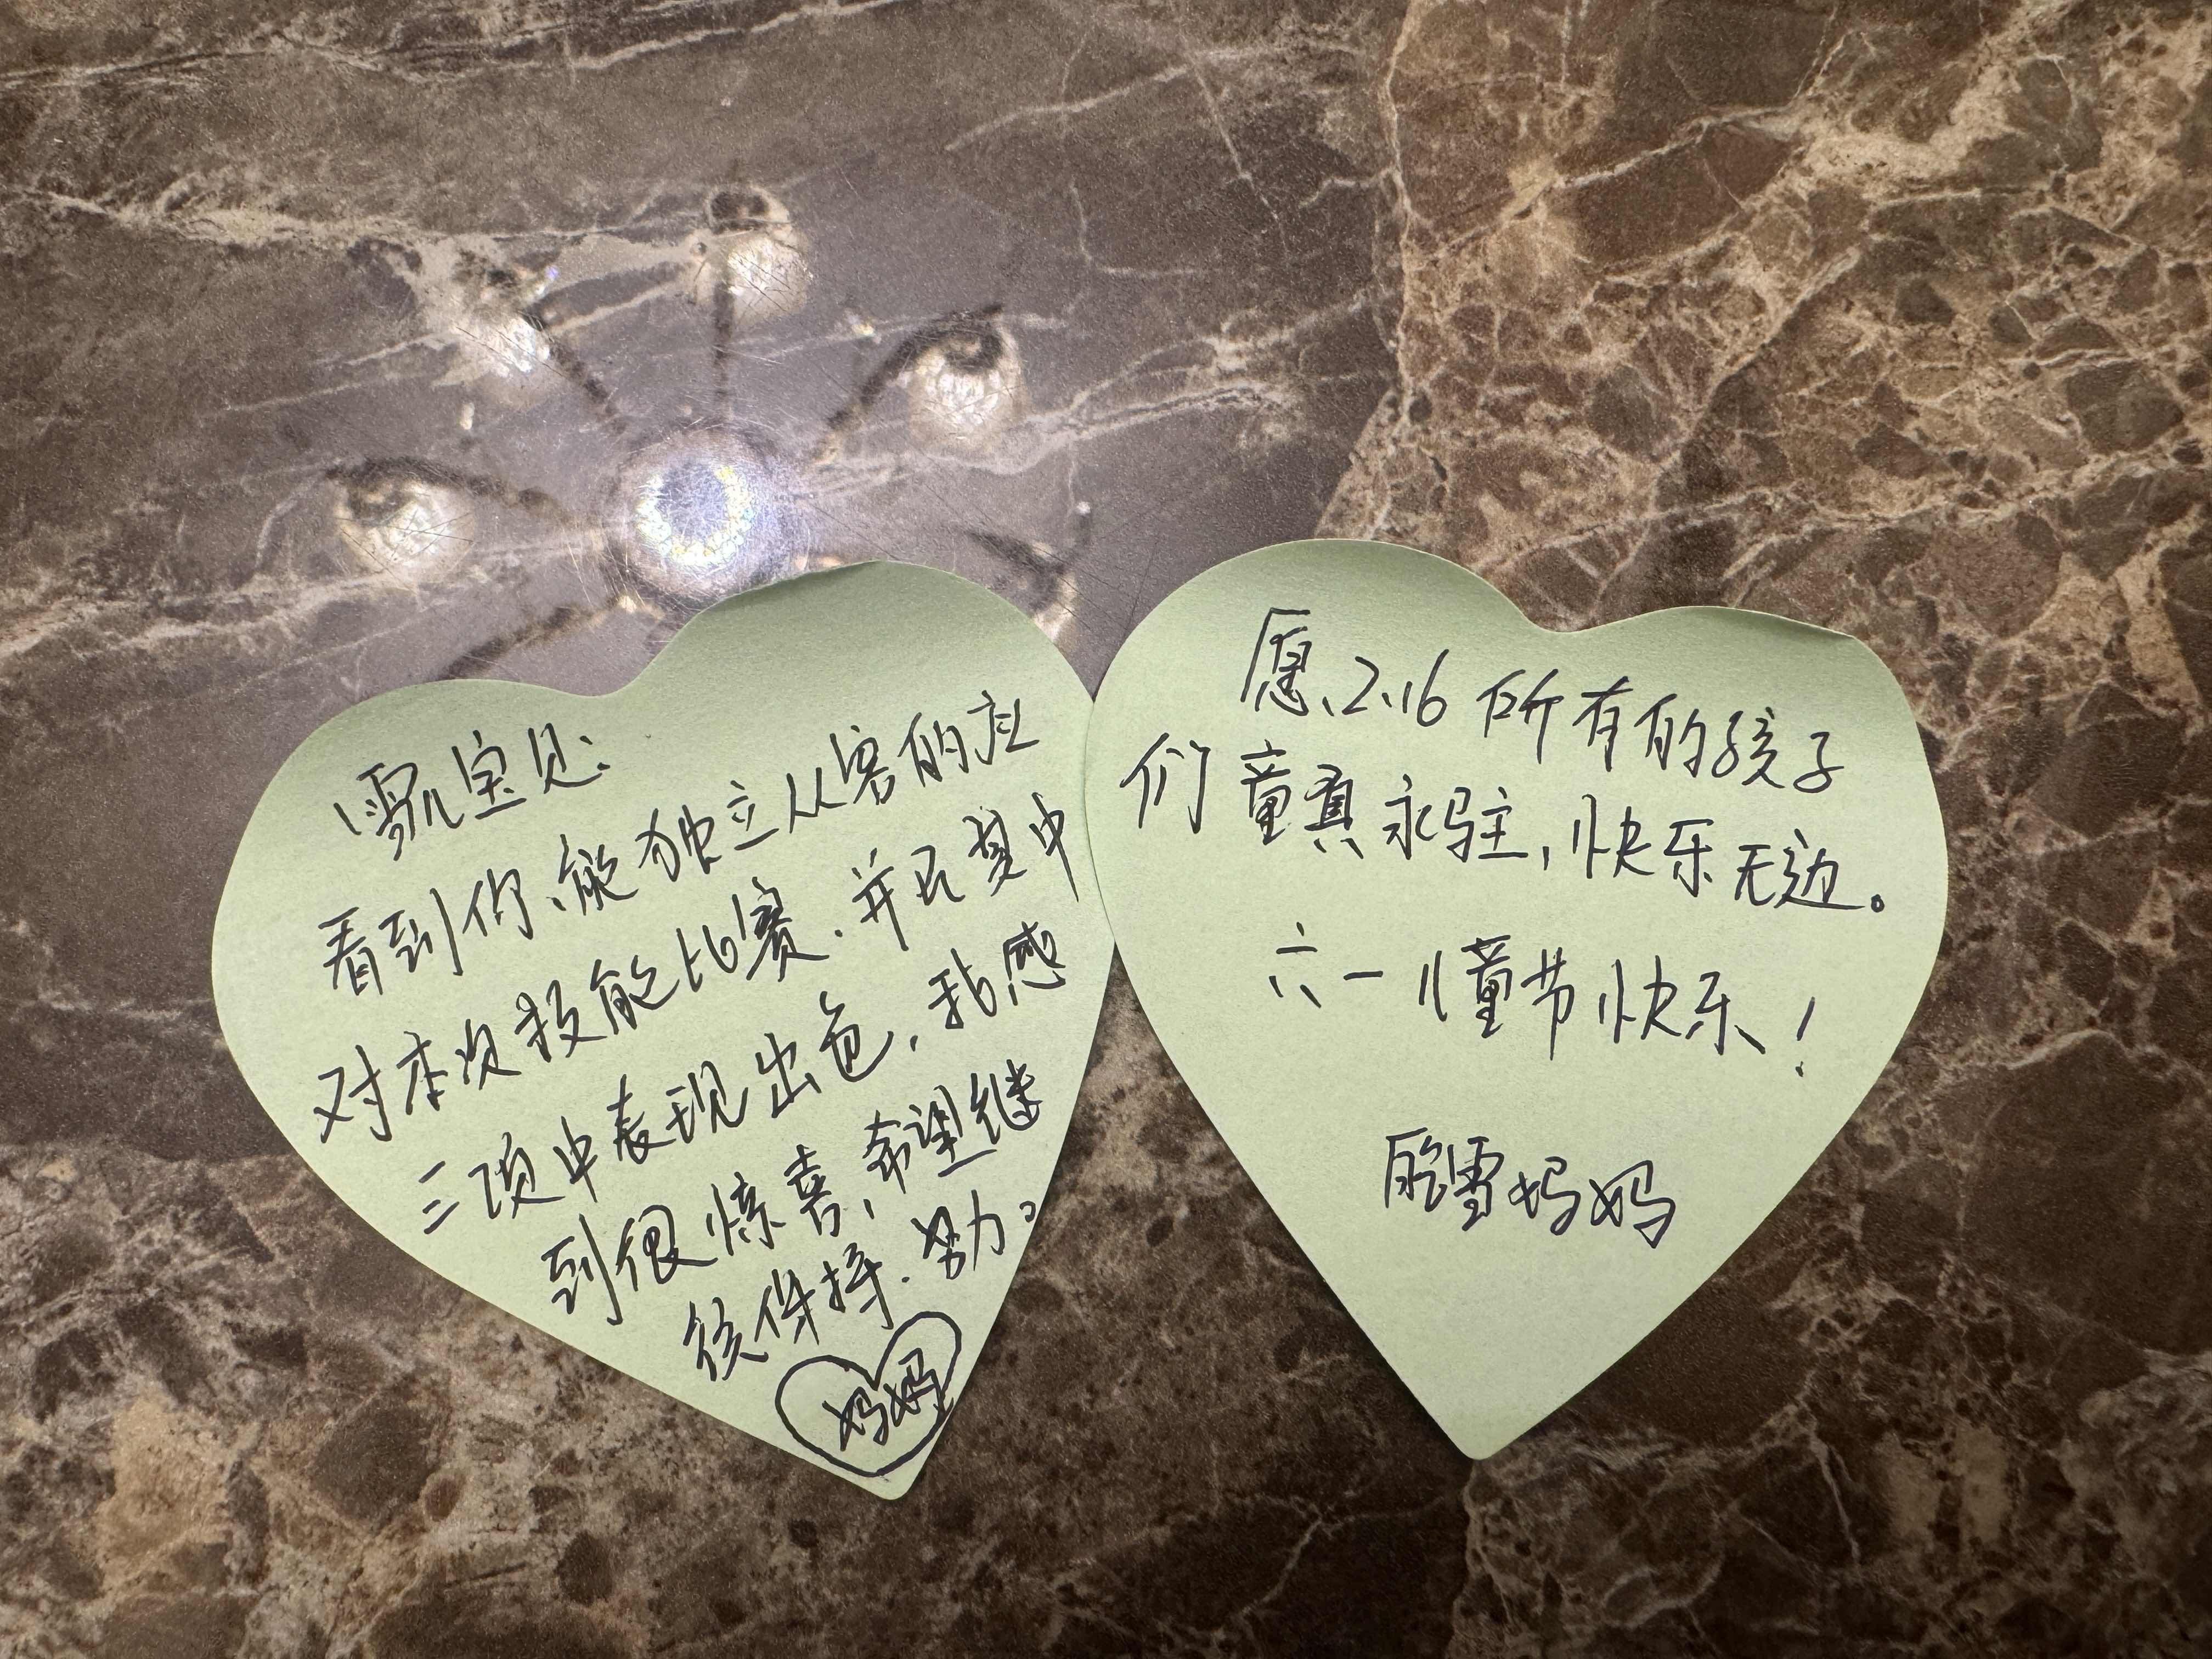 雪儿宝贝:
看到你、能独立从容的应
对本次技能比赛.并且其中
三项中表现出色,我感
到很惊喜,希望继
续保持.努力。
妈妈
愿、2.16所有的孩子
们童真永驻,快乐无边。
六一儿童节快乐!
雪妈妈